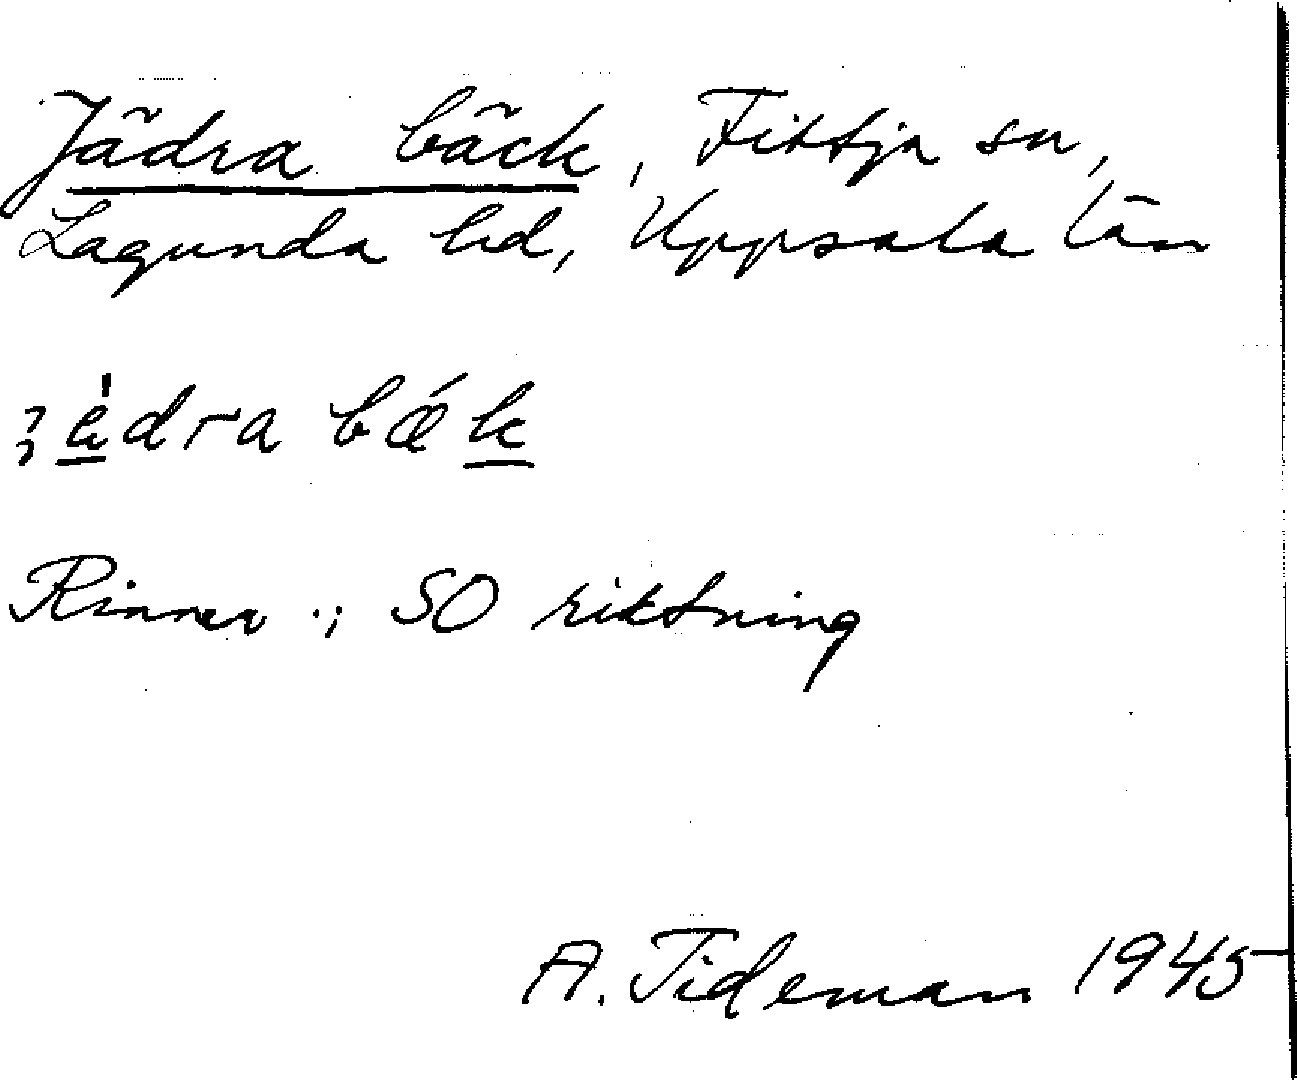 Jädra bäck, Fittja sn,
Lagunda hd, Uppsala län
dra bǽk
Rinner i SO riktning
A. Tideman 1945